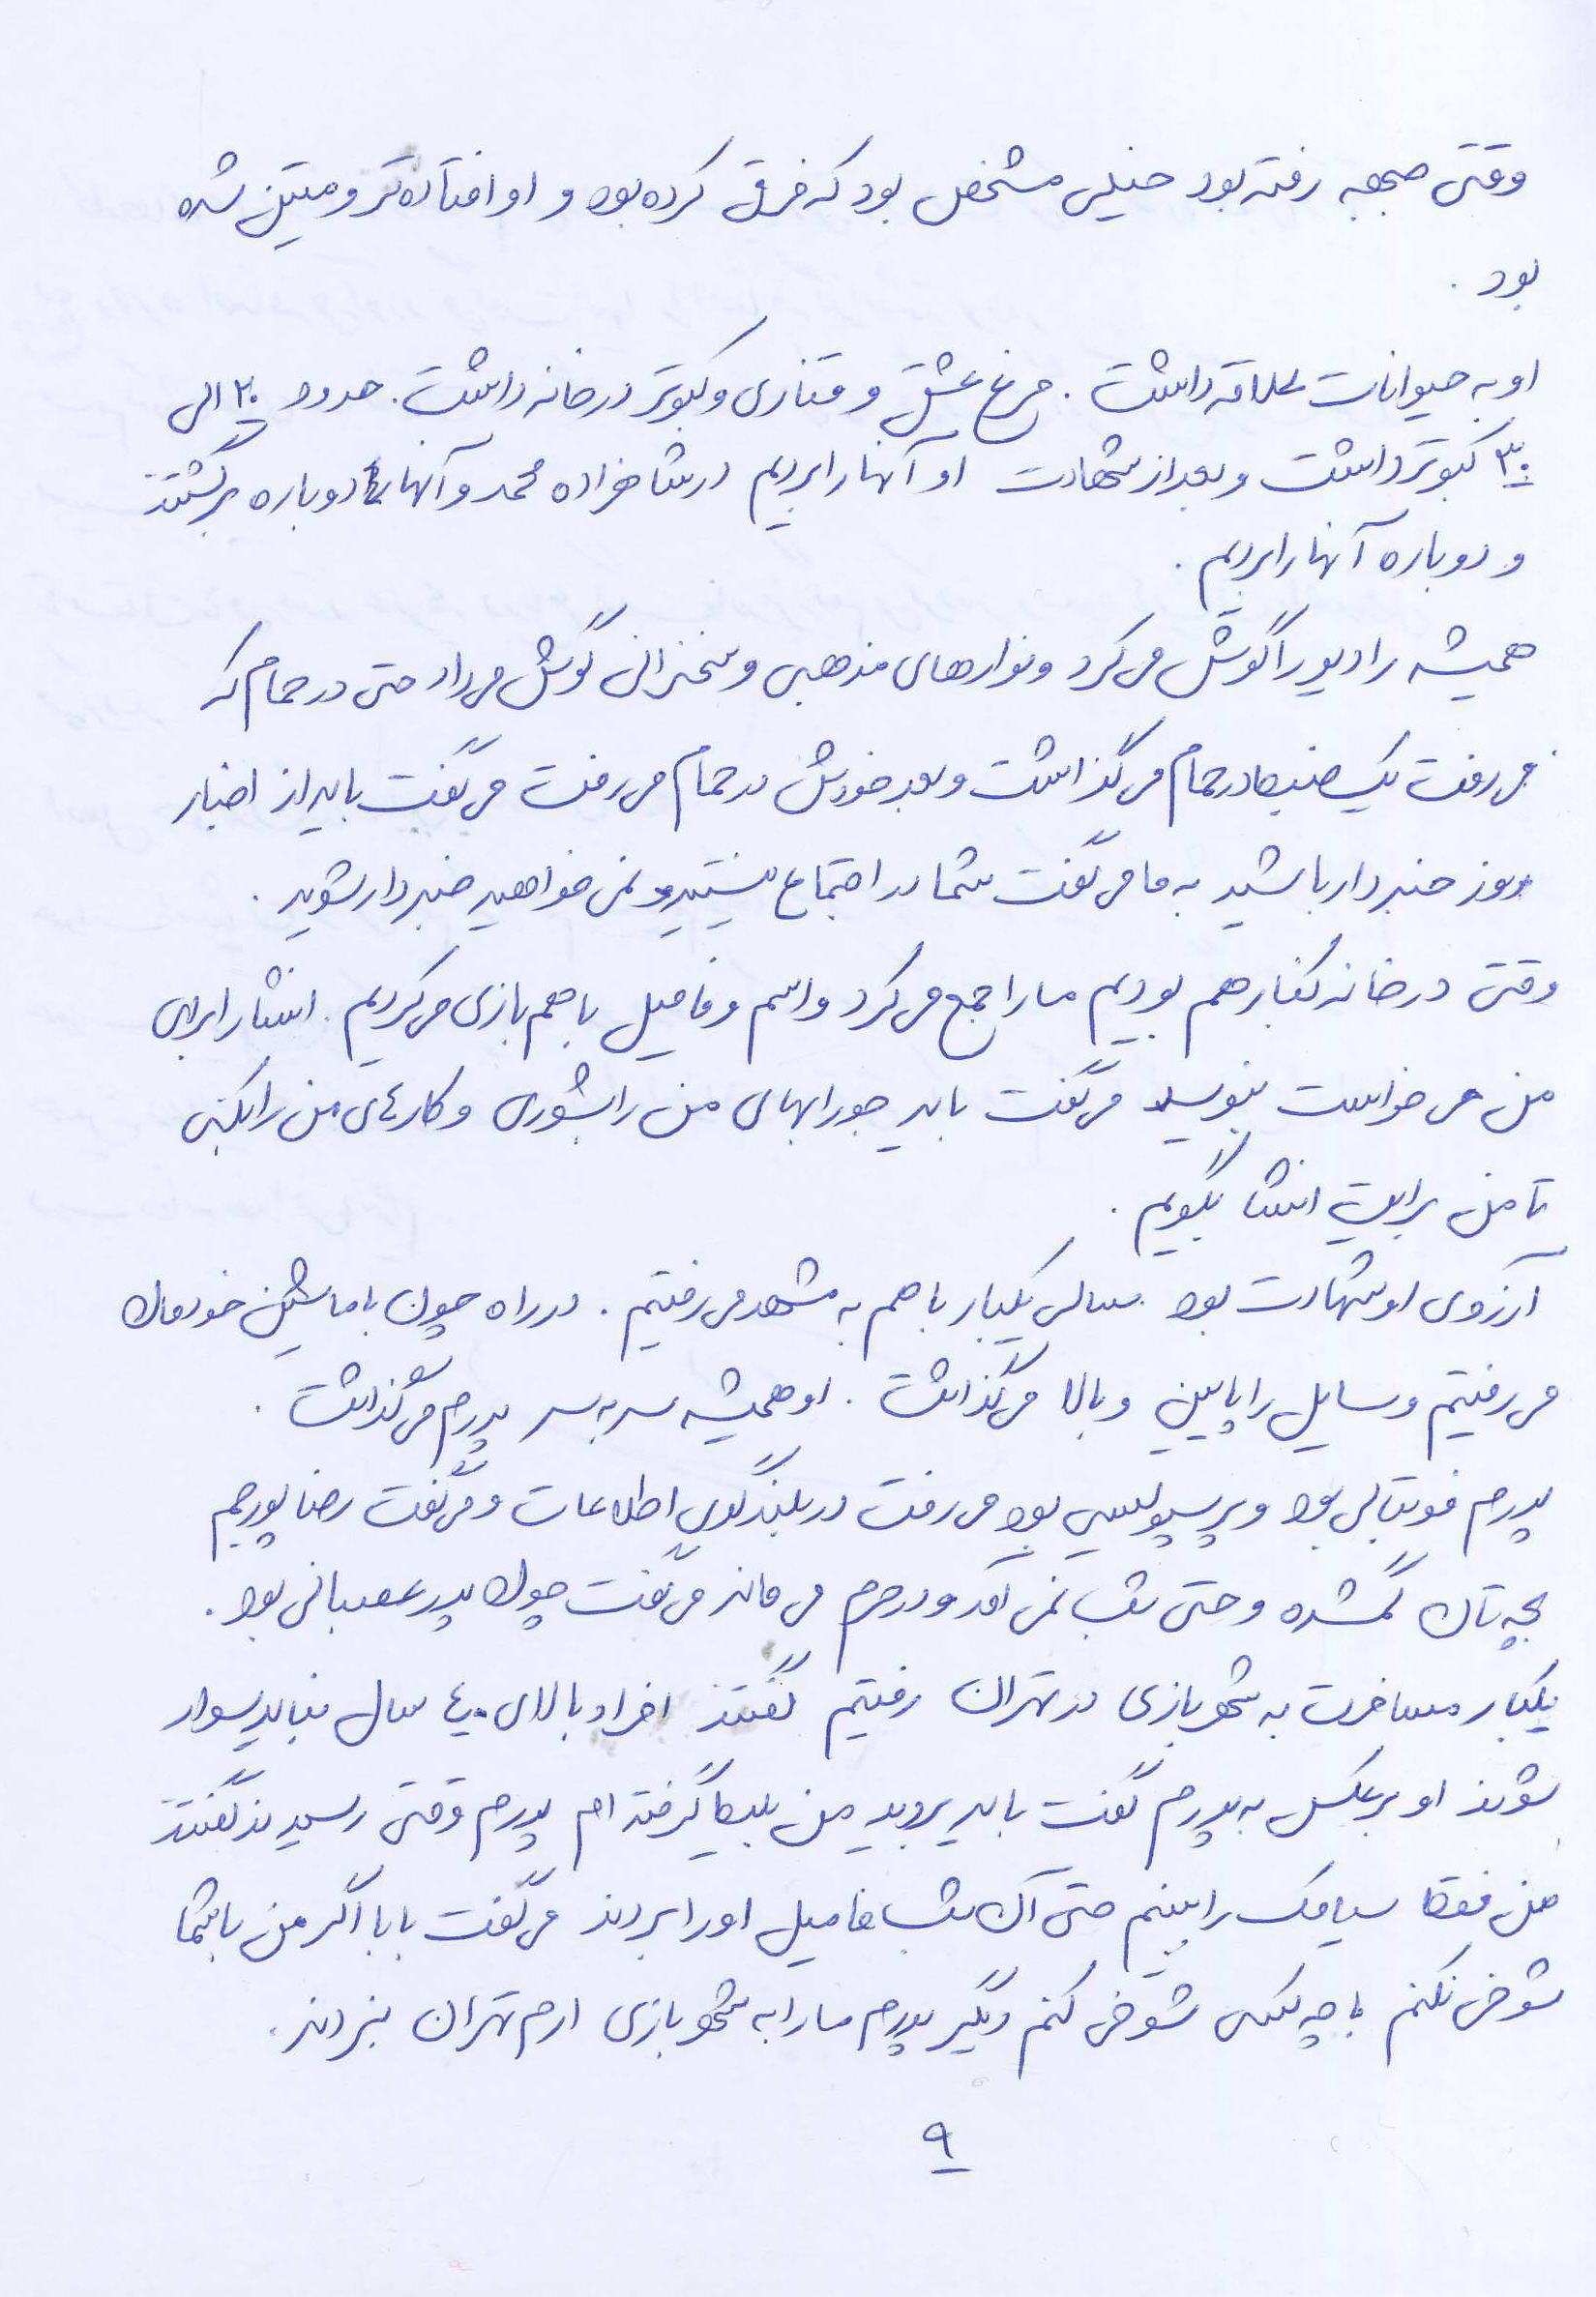 وقتی جبهه رفته بود خیلی مشخص بود که فرق کرده بود و او افتاده‌تر و متین شده
بود .
او به حیوانات علاقه داشت . مرغ عشق و قناری و کبوتر در خانه داشت . حدود ۲۰ الی
۳۰ کبوتر داشت و بعد از شهادت او آنها را بردیم در شاهزاده محمد و آنها دوباره برگشتند
و دوباره آنها را بردیم .
همیشه رادیو را گوش می‌کرد و نوارهای مذهبی و سخنرانی گوش می‌داد حتی در حمام که
می‌رفت یک ضبط در حمام می‌گذاشت و بعد خودش در حمام می‌رفت می‌گفت باید از اخبار
روز خبردار باشید به ما می‌گفت شما در اجتماع نیستید و نمی‌خواهید خبردار شوید .
وقتی در خانه کنار هم بودیم ما را جمع می‌کرد و اسم و فامیل با هم بازی می‌کردیم . انشا را برای
من می‌خواست بنویسد می‌گفت باید جورابهای من را بشوری و کارهای من را بکنی
تا من برایت انشا بگویم .
آرزوی او شهادت بود . سالی یکبار با هم به مشهد می‌رفتیم . در راه چون با ماشین خودمان
می‌رفتیم وسایل را پایین و بالا می‌گذاشت . او همیشه سر به سر پدرم می‌گذاشت .
پدرم فوتبالی بود و پرسپولیسی بود می‌رفت در بلندگوی اطلاعات و می‌گفت رضا پورجم
بچه تان گمشده و حتی شب نمی‌آمد و در حرم می‌ماند می‌گفت چون پدر عصبانی بود .
یکبار مسافرت به شهربازی در تهران رفتیم گفتند افراد بالای ۴۰ سال نباید سوار
شوند او برعکس به پدرم گفت باید بروید من بلیط گرفته ام پدرم وقتی رسیدند گفتند
من فقط سیامک را ببینم حتی آن شب فامیل او را بردند می‌گفت بابا اگر من با شما
شوخی نکنم با چه کسی شوخی کنم دیگر پدرم ما را به شهربازی ارم تهران نبردند .
۹